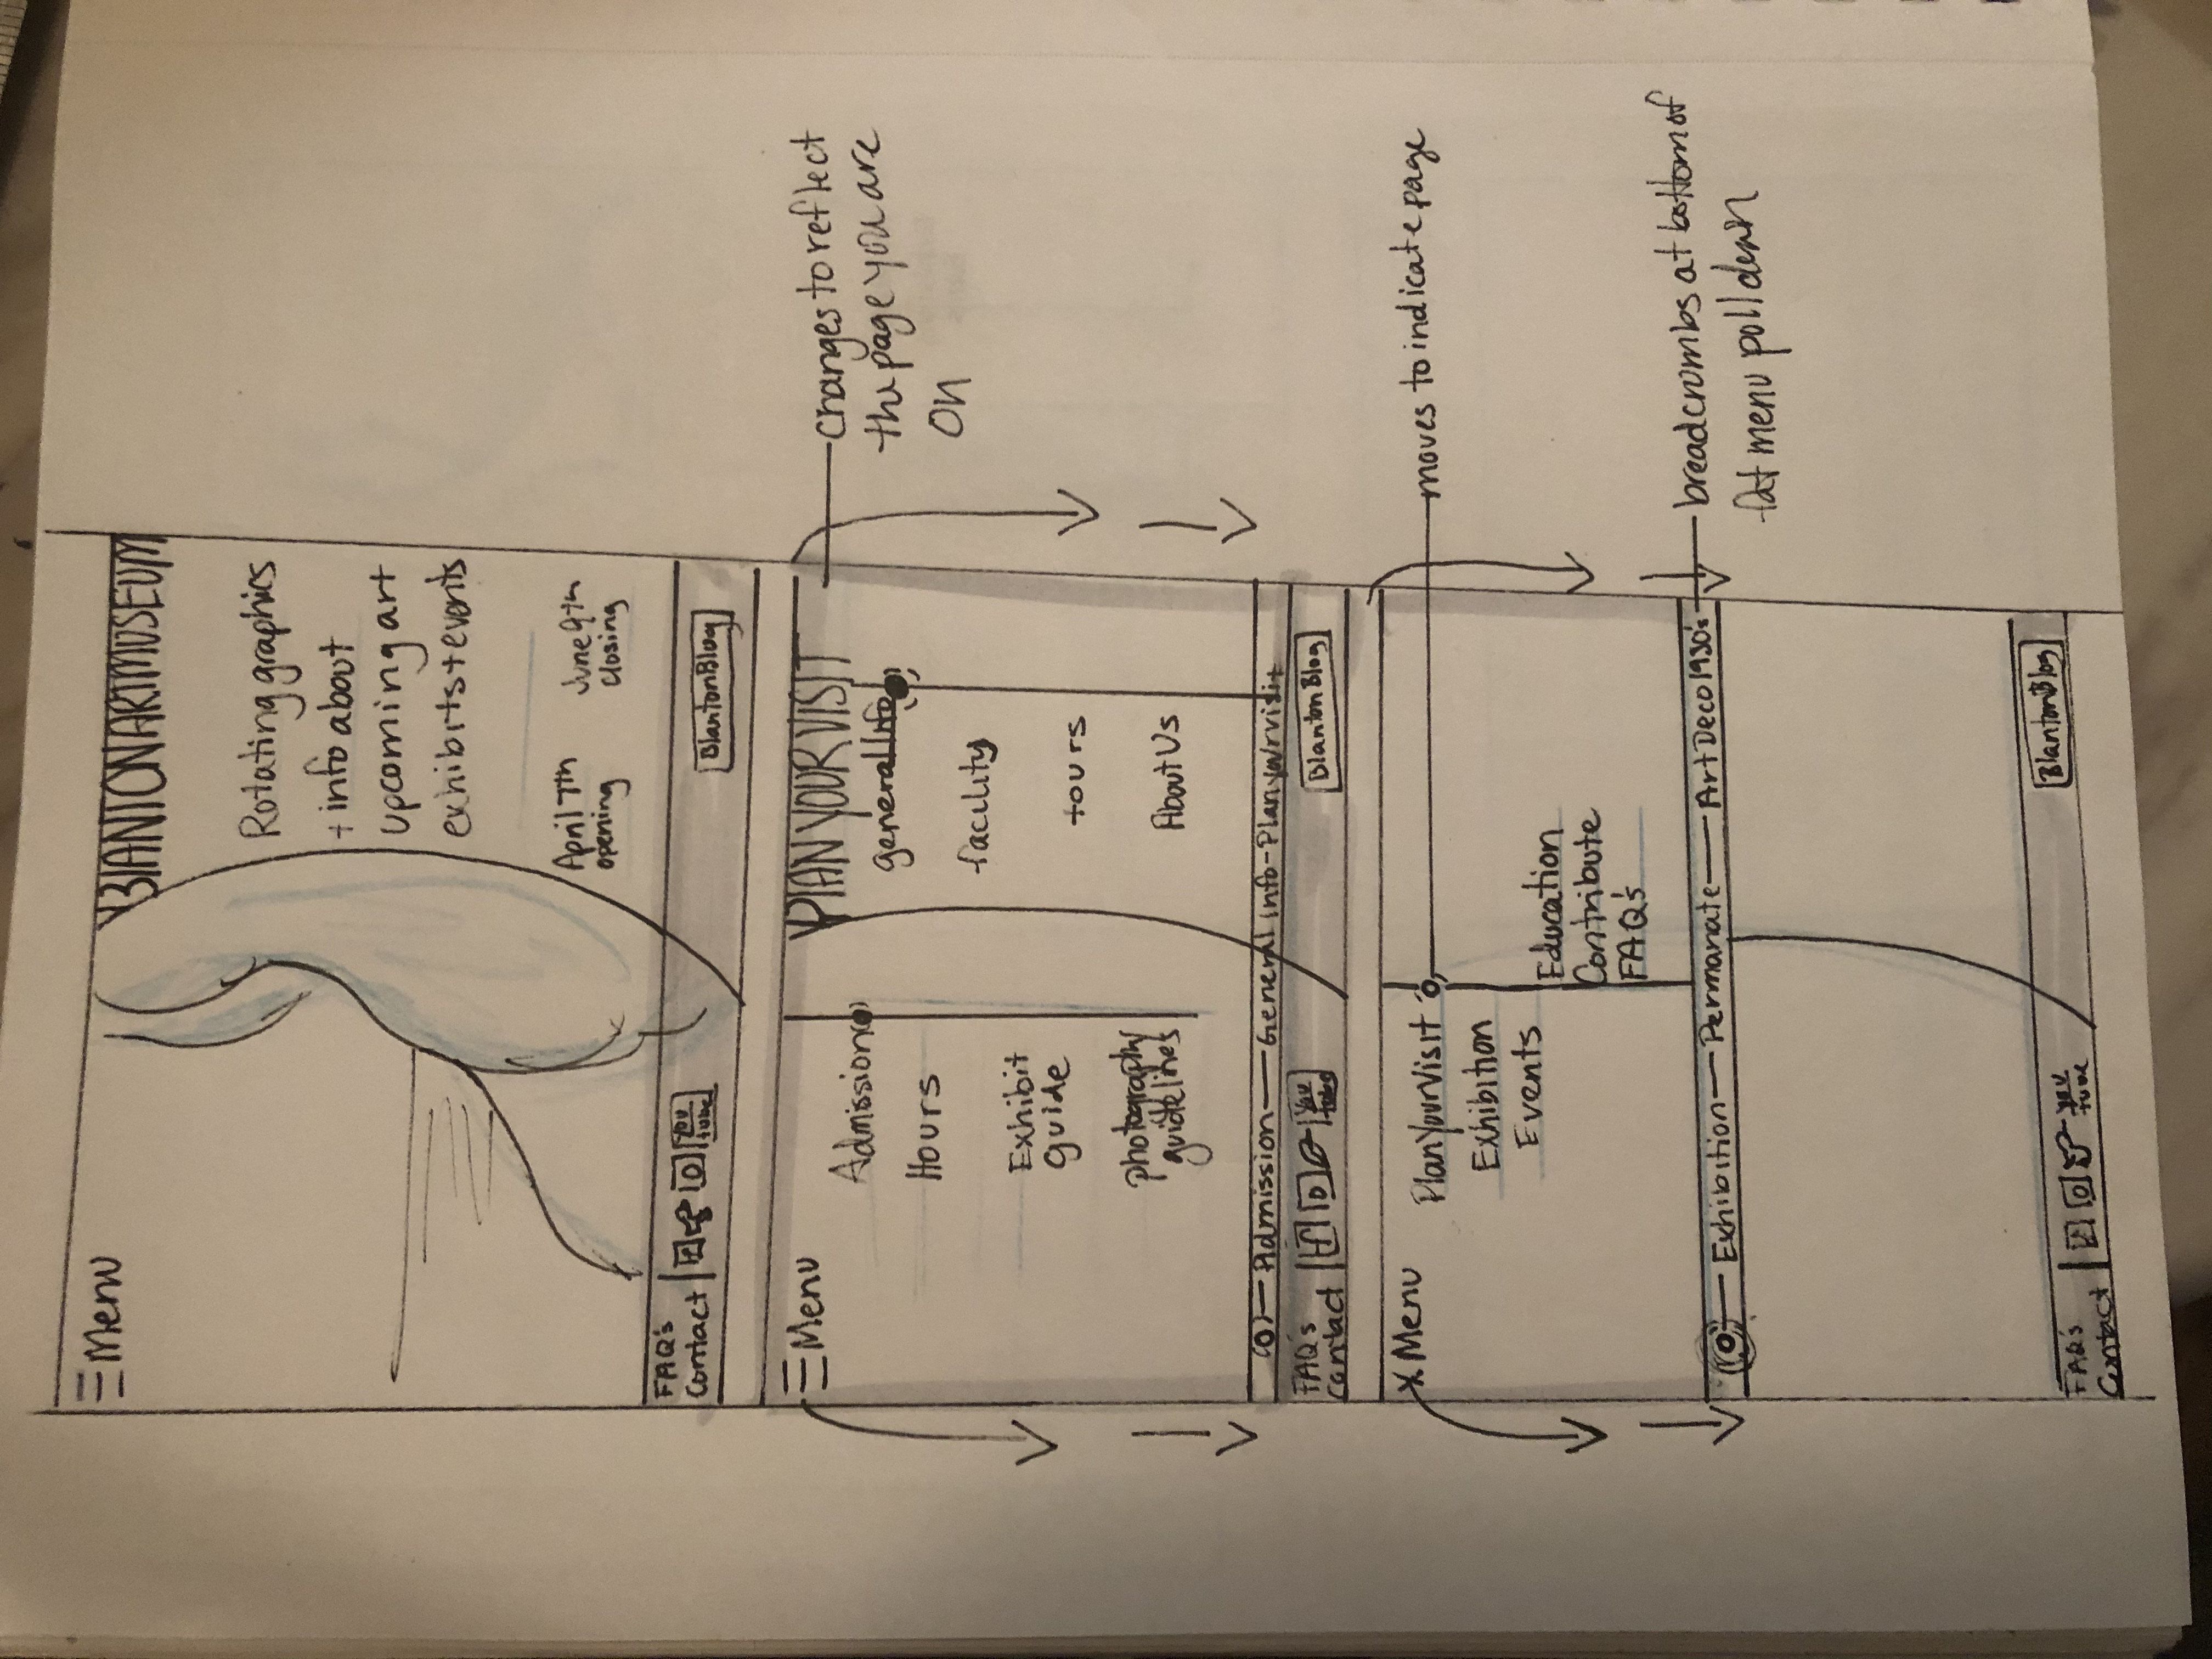 Menu
BLANTON ART MUSEUM
Rotating graphics
+ info about
upcoming art
exhibits + events
April 7th
opening
June 9th
closing
FAQ's
Contact
f
You
tube
Blanton Blog
Menu
PLAN YOUR VISIT
Admission
Hours
Exhibit
guide
photography
guidelines
general Info
facility
tours
About Us
changes to reflect
the page you are
on
Admission — General Info - Plan your visit
FAQ's
Contact
f
You
tube
Blanton Blog
X Menu
Plan Your Visit
Exhibition
Events
Education
Contribute
FAQ's
moves to indicate page
Exhibition — Permanate — Art Deco 1930's
breadcrumbs at bottom of
fat menu poll down
FAQ's
Contact
f
You
tube
Blanton Blog